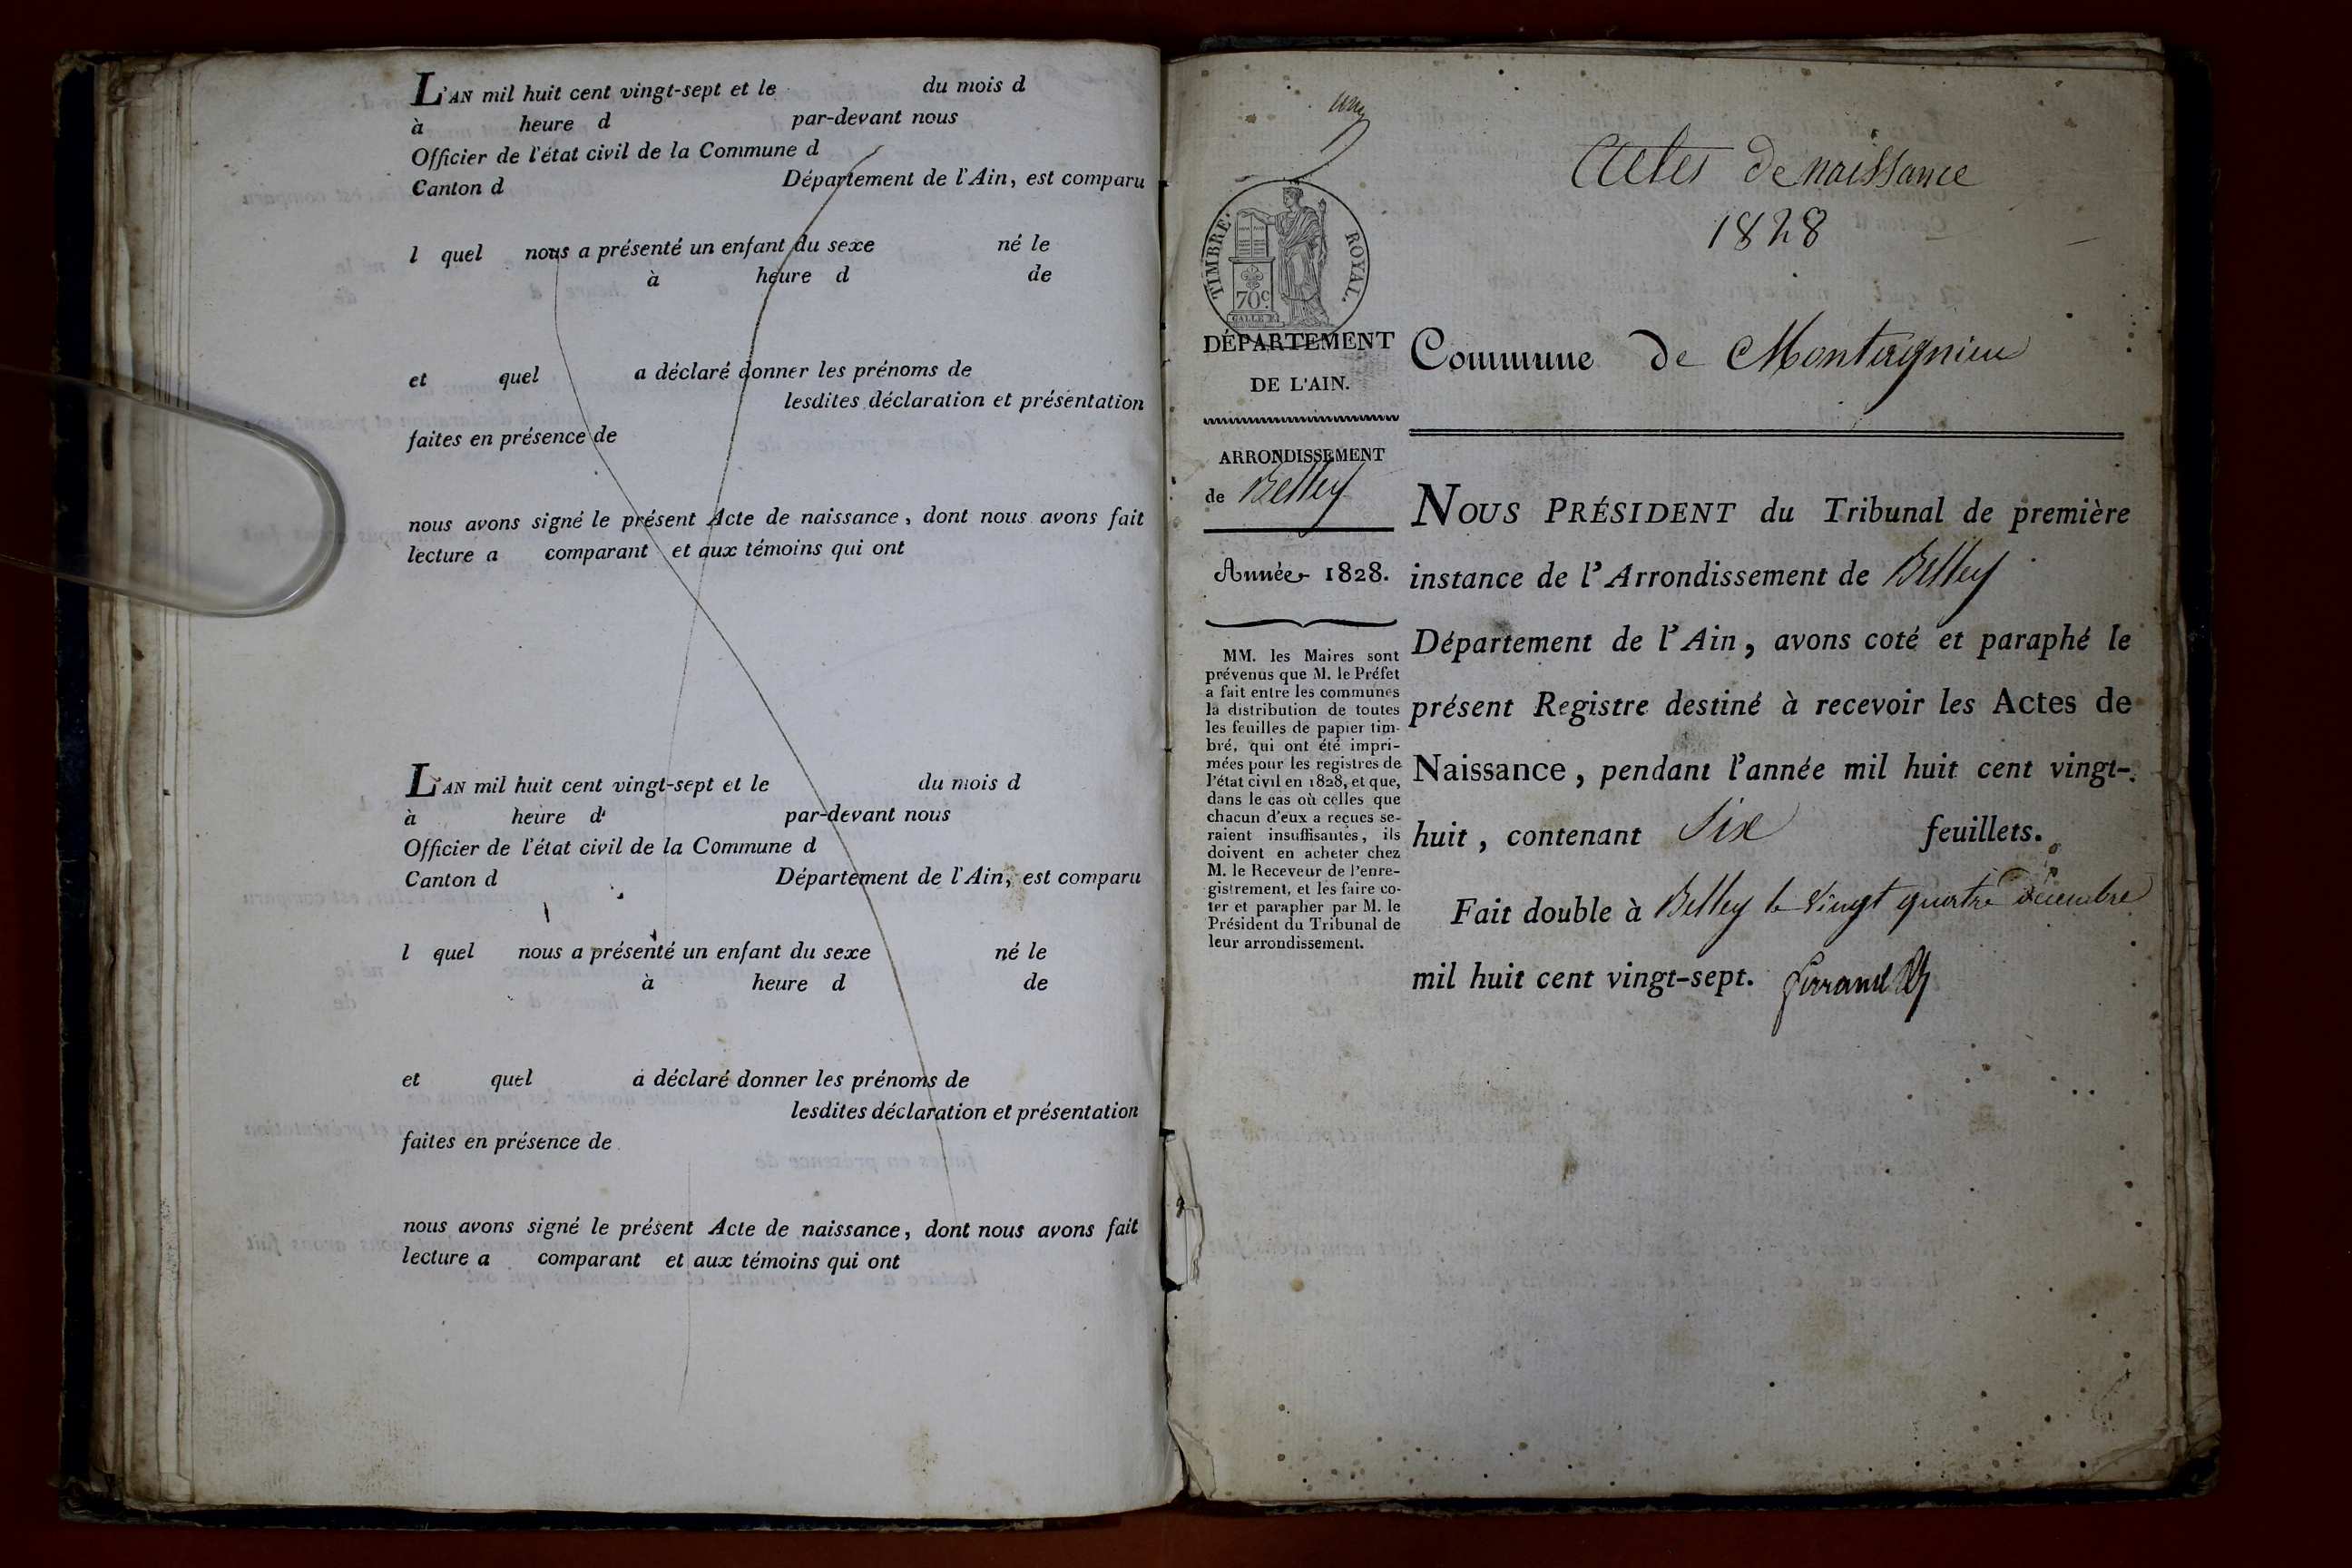 L'AN mil huit cent vingt-sept et le du mois d
à heure d par-devant nous
Officier de l'état civil de la Commune d
Canton d Département de l'Ain, est comparu
l quel nous a présenté un enfant du sexe né le
à heure d de
et quel a déclaré donner les prénoms de
lesdites déclaration et présentation
faites en présence de
nous avons signé le présent Acte de naissance, dont nous avons fait
lecture a comparant et aux témoins qui ont
L'AN mil huit cent vingt-sept et le du mois d
à heure d par-devant nous
Officier de l'état civil de la Commune d
Canton d Département de l'Ain, est comparu
l quel nous a présenté un enfant du sexe né le
à heure d de
et quel a déclaré donner les prénoms de
lesdites déclaration et présentation
faites en présence de
nous avons signé le présent Acte de naissance, dont nous avons fait
lecture a comparant et aux témoins qui ont
TIMBRE ROYAL.
70c.
DÉPARTEMENT
DE L'AIN.
ARRONDISSEMENT
de Belley
Année 1828.
MM. les Maires sont
prévenus que M. le Préfet
a fait entre les communes
la distribution de toutes
les feuilles de papier tim-
bré, qui ont été impri-
mées pour les registres de
l'état civil en 1828, et que,
dans le cas où celles que
chacun d'eux a reçues se-
raient insuffisantes, ils
doivent en acheter chez
M. le Receveur de l'enre-
gistrement, et les faire co-
ter et parapher par M. le
Président du Tribunal de
leur arrondissement.
Actes de naissance
1828
Commune de Montagnieu
NOUS PRÉSIDENT du Tribunal de première
instance de l'Arrondissement de Belley
Département de l'Ain, avons coté et paraphé le
présent Registre destiné à recevoir les Actes de
Naissance, pendant l'année mil huit cent vingt-
huit, contenant Six feuillets.
Fait double à Belley le vingt quatre décembre
mil huit cent vingt-sept.